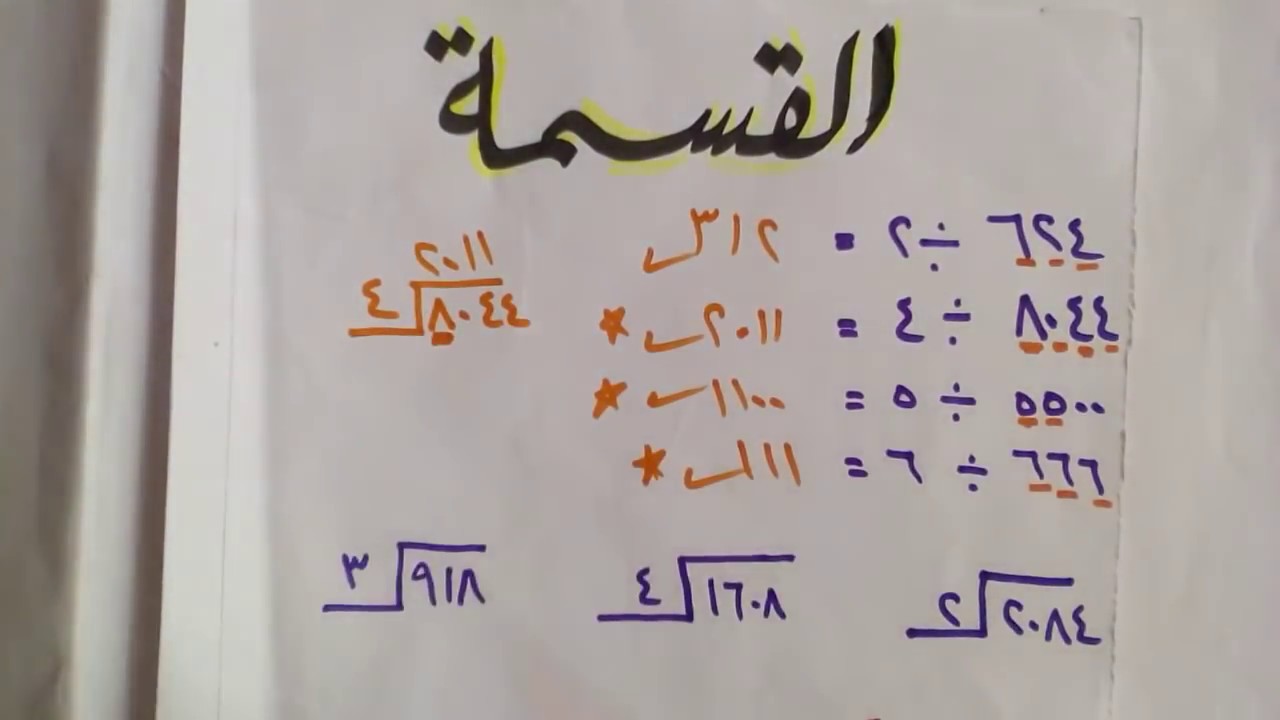 القسمة
٦٢٤ ÷ ٢ = ٣١٢
٨٠٤٤ ÷ ٤ = ٢٠١١ ★
٥٥٠٠ ÷ ٥ = ١١٠٠ ★
٦٦٦ ÷ ٦ = ١١١ ★
٢٠١١
٤ ٨٠٤٤
٢ ٢٠٨٤
٤ ١٦٠٨
٣ ٩١٨